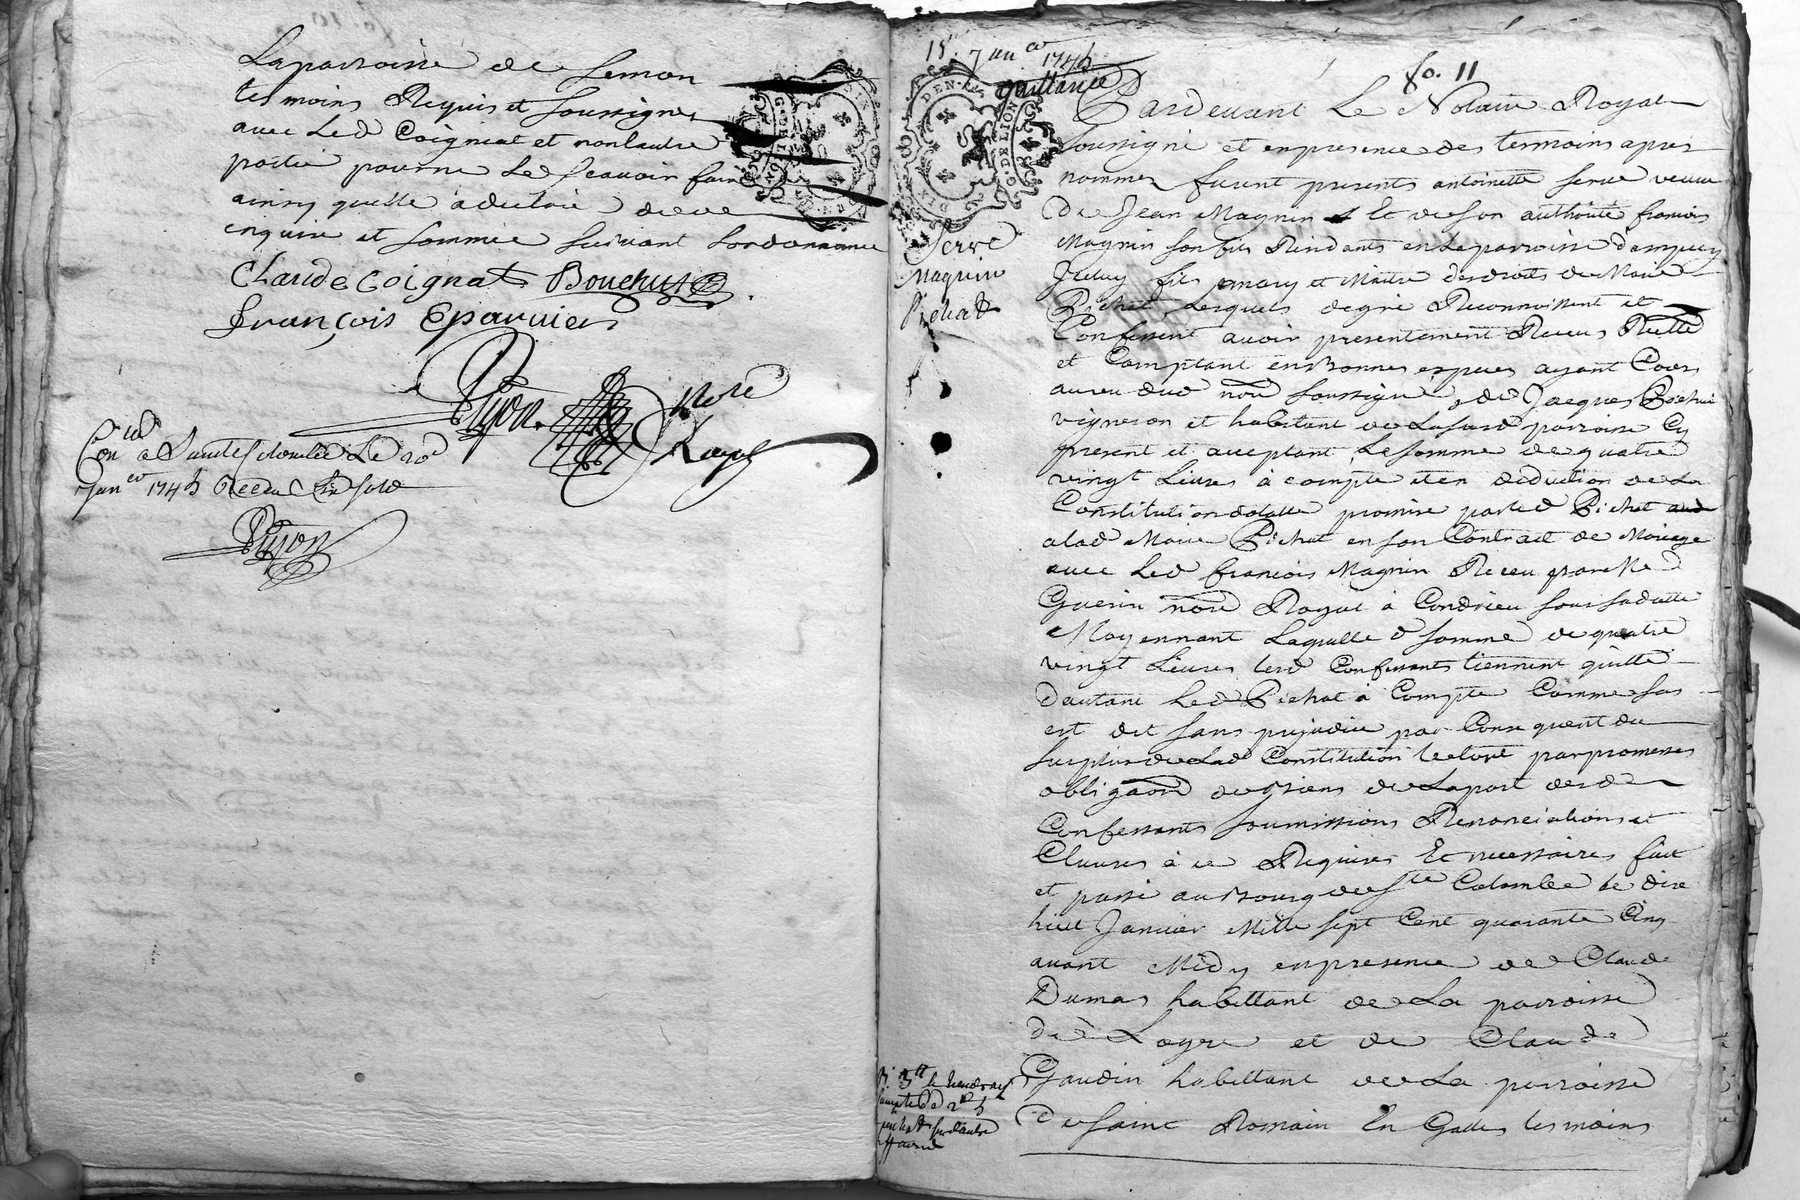 La parroisse de Semon
tesmoins Requis et soussignes
avec Led Coignat et non lautre
partie pour ne Le scavoir faire
ainsy quelle a declaré de ce
enquise et sommée suivant Lordonnance
Claude Coignat Bouchut
François Eparvier
Pijon Nore
Royal
Con a Sainte Colombe Le 20e
Janer 1745 Receu six sols
Pijon
18 Janer 1745
quittance
fo. 11
DEN.
G. DE LION
Serve
Magnin
Pichat
Pardevant Le Notaire Royal
soussigné et en presence des temoins apres
nommes furent presents antoinette serve veuve
de Jean Magnin Et de son authorité francois
Magnin son fils Residants en La parroisse dampuis
Iceluy fils mary et Maitre des droits de Marie
Pichat Lesquels de gré Reconnoissent et
Confessent avoir presentement Receu Reelle
et Comptant en Bonnes especes ayant Cours
au veu dud nore soussigné, de Jacques Pichat
vigneron et habitant de Lasard parroisse Cy
present et acceptant La somme de quatre
vingt Livres à compte et en deduction de La
Constitution dotalle promise par led Pichat
a lad Marie Pichat en son Contract de Mariage
avec Led francois Magnin Receu par Me
Guerin nore Royal à Condrieu sous sa datte
Moyennant Laquelle d somme de quatre
vingt Livres lesd Confessants tiennent quitte
dautant Led Pichat à Compte Comme sus
est dit sans prejudice par Consequent du
surplus de Lad Constitution le tout par promesses
obligaon de Biens de La part desd
Confessants soumissions Renonciations et
Clauses à ce Requises Et necessaires fait
et passé au Bourg de Ste Colombe le dix
huit Janvier Mille sept Cent quarante Cinq
avant Midy en presence de Claude
Dumas habittant de La parroisse
de Loyre et de Claude
Gaudin habittant de La parroisse
de saint Romain En Galles tesmoins